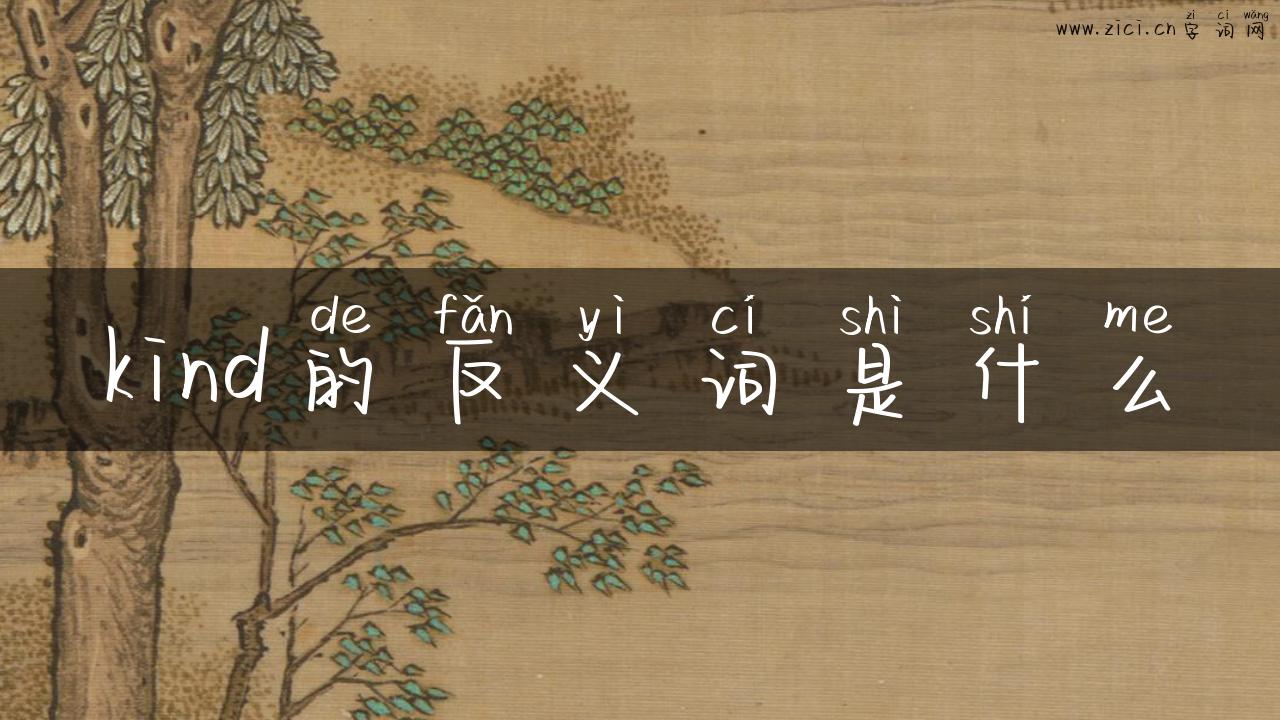 zì cí wǎng
www.zici.cn 字 词 网
de fǎn yì cí shì shí me
kind 的 反 义 词 是 什 么